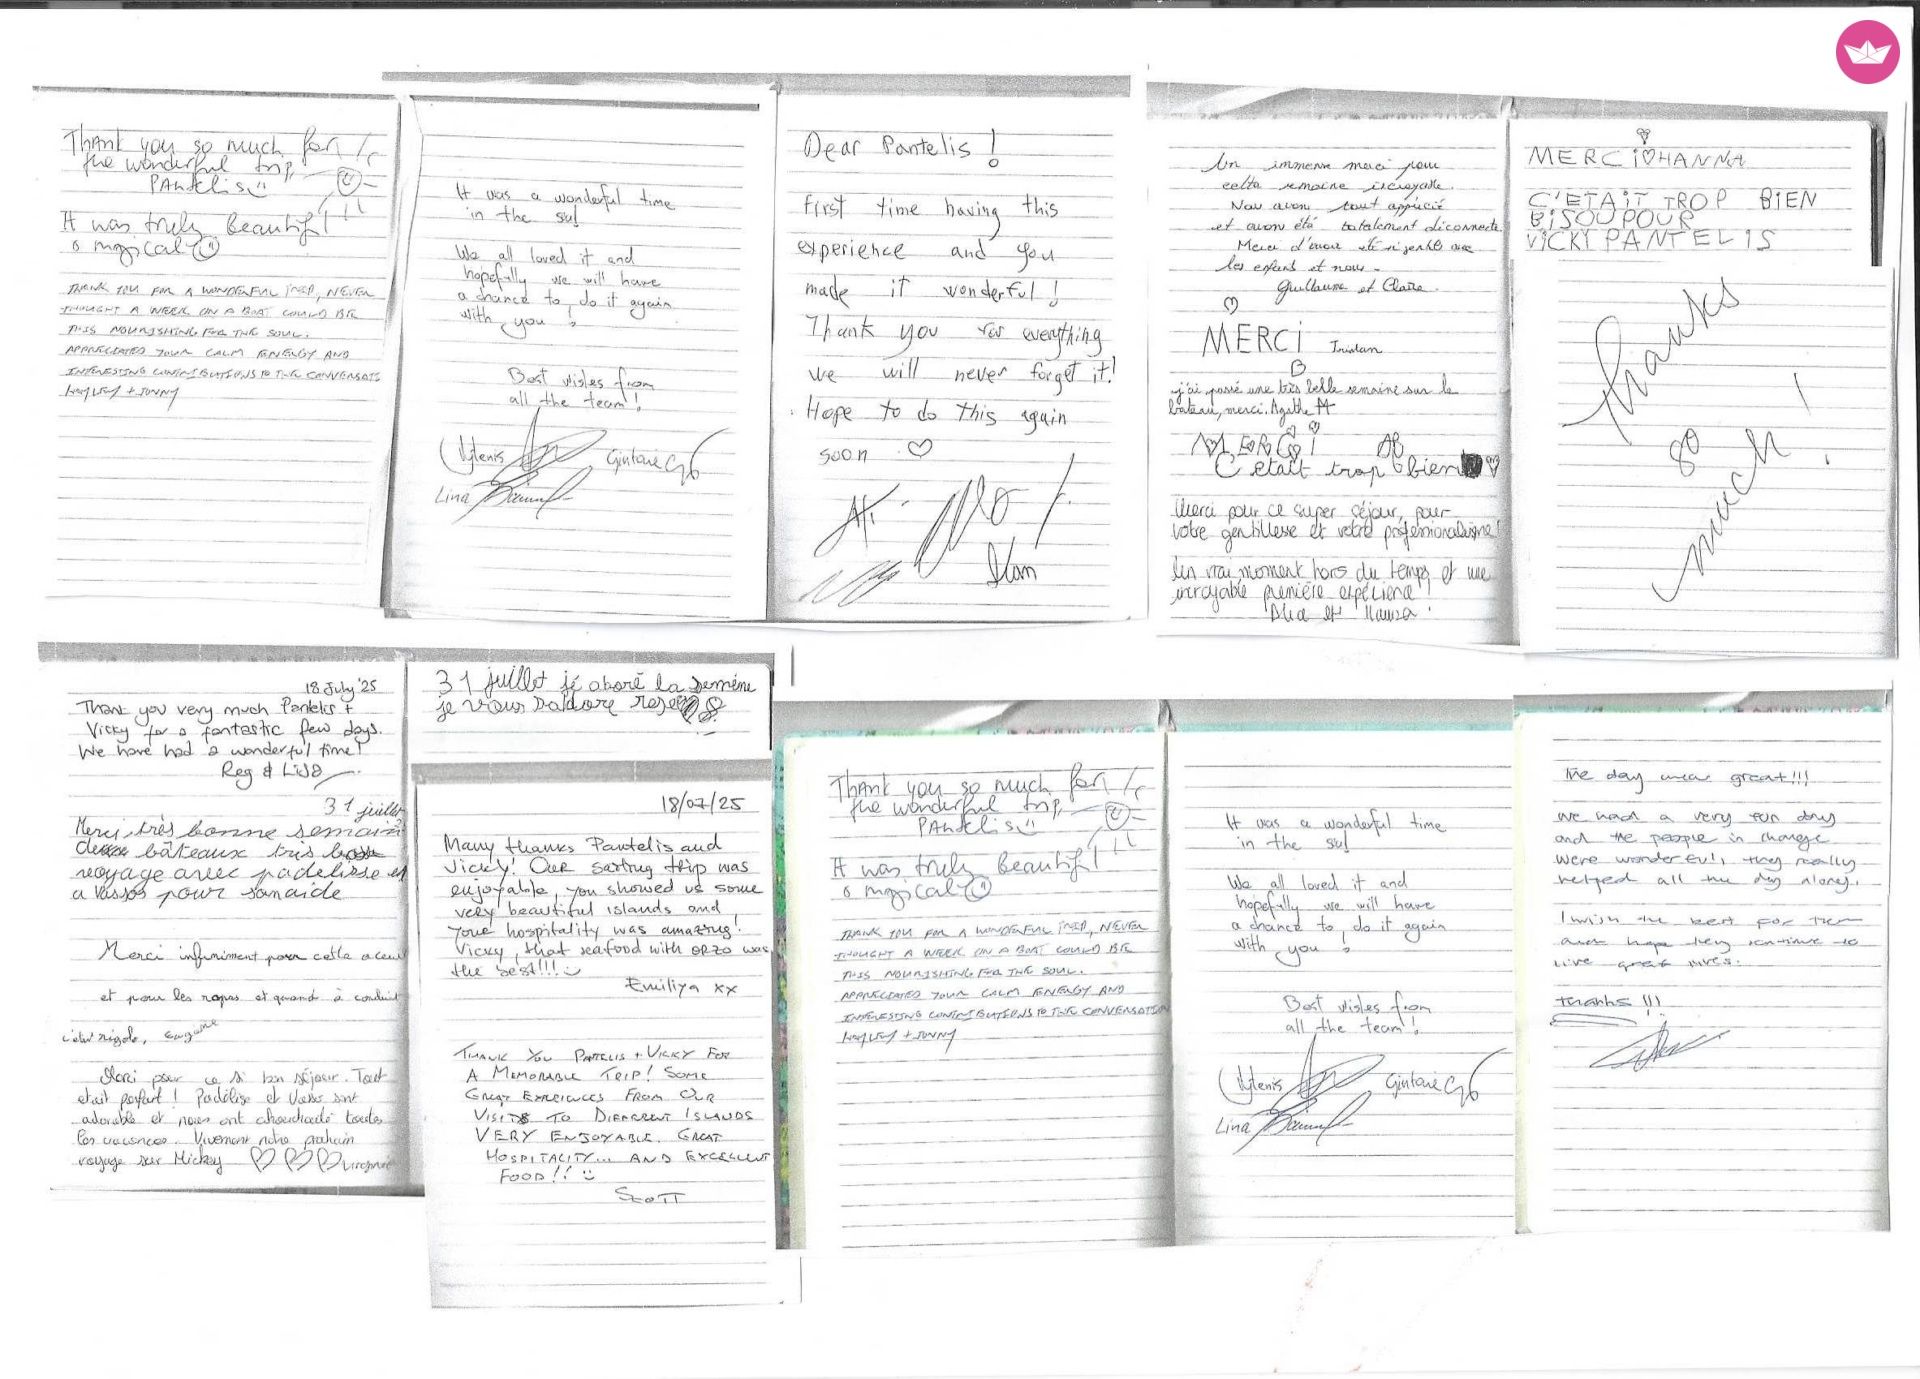 Thank you so much for
the wonderful trip,
Pantelis
It was truly beautiful
& magical
THANK YOU FOR A WONDERFUL TRIP, NEVER
THOUGHT A WEEK ON A BOAT COULD BE
THIS NOURISHING FOR THE SOUL.
APPRECIATED YOUR CALM ENERGY AND
INTERESTING CONTRIBUTIONS TO THE CONVERSATS
HAYLEY + JONNY
It was a wonderful time
in the
We all loved it and
hopefully we will have
a chance to do it again
with you!
Best vishes from
all the team!
Vytenis
Gintarė
Lina
Dear Pantelis!
first time having this
experience and you
made it wonderful!
Thank you for everything
we will never forget it!
Hope to do this again
soon
Ilan
Un immense merci pour
cette semaine incroyable.
Nous avons tout apprécié
et avons été totalement déconnecté
Merci d'avoir été si gentils avec
les enfants et nous.
Guillaume et Claire.
MERCI Tristan
j'ai passé une très belle semaine sur le
bateau, merci. Agathe
MERCI
C etait trop bien
Merci pour ce super séjour, pour
votre gentillesse et votre professionnalisme!
Un vrai moment hors du temps et une
incroyable première expérience!
et
MERCI HANNA
C'ETAIT TROP BIEN
BISOU POUR
VICKY PANTELIS
Thanks
so
much!
18 July '25
Thank you very much Pantelis +
Vicky for a fantastic few days.
We have had a wonderful time!
Reg & Lisa
31 juillet
Merci très bonne semain
bâteaux très
voyage avec padelisse et
a Vassos pour son aide
Merci infiniment pour cette
et pour les repas et quand à conduit
c'était rigolo,
Merci pour ce si bon séjour. Tout
etait parfait! Padélise et Vasso sont
adorable et nous ont chouchouté toutes
les vacances. Vivement notre prochain
voyage sur Mickey Virginie
31 juillet jé adoré la seméne
je vous
18/07/25
Many thanks Pantelis and
Vicky! Our sailing trip was
enjoyable, you showed us some
very beautiful islands and
your hospitality was amazing!
Vicky, that seafood with orzo was
the best!!!
Emiliya xx
THANK YOU PANTELIS + VICKY FOR
A MEMORABLE TRIP! SOME
GREAT EXPERIENCES FROM OUR
VISITS TO DIFFERENT ISLANDS
VERY ENJOYABLE. GREAT
HOSPITALITY... AND EXCELLENT
FOOD!!
SCOTT
Thank you so much for
the wonderful trip,
Pantelis
It was truly beautiful
& magical
THANK YOU FOR A WONDERFUL TRIP, NEVER
THOUGHT A WEEK ON A BOAT COULD BE
THIS NOURISHING FOR THE SOUL.
APPRECIATED YOUR CALM ENERGY AND
INTERESTING CONTRIBUTIONS TO THE CONVERSATION
HAYLEY + JONNY
It was a wonderful time
in the
We all loved it and
hopefully we will have
a chance to do it again
with you!
Best vishes from
all the team!
Vytenis
Gintarė
Lina
The day was great!!!
We had a very fun day
and the people in charge
were wonderful, they really
helped all the day along.
I wish the best for them
and hope they continue to
live great lives.
Thanks !!!